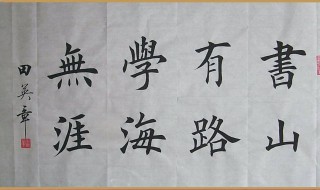 書山
有路
學海
無涯
田英章